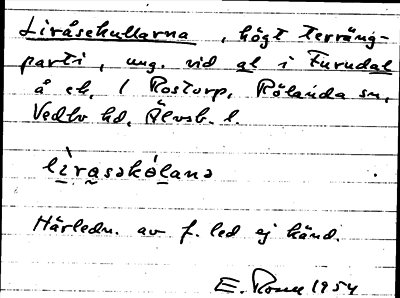 Liråsekullarna, högt terräng-
parti, ung. vid al i Furudal
å ek. 1 Rostorp, Rölanda sn,
Vedbo hd, Älvsb. l.
lìrasəkólanə
Härledn. av f. led ej känd.
E. 1954